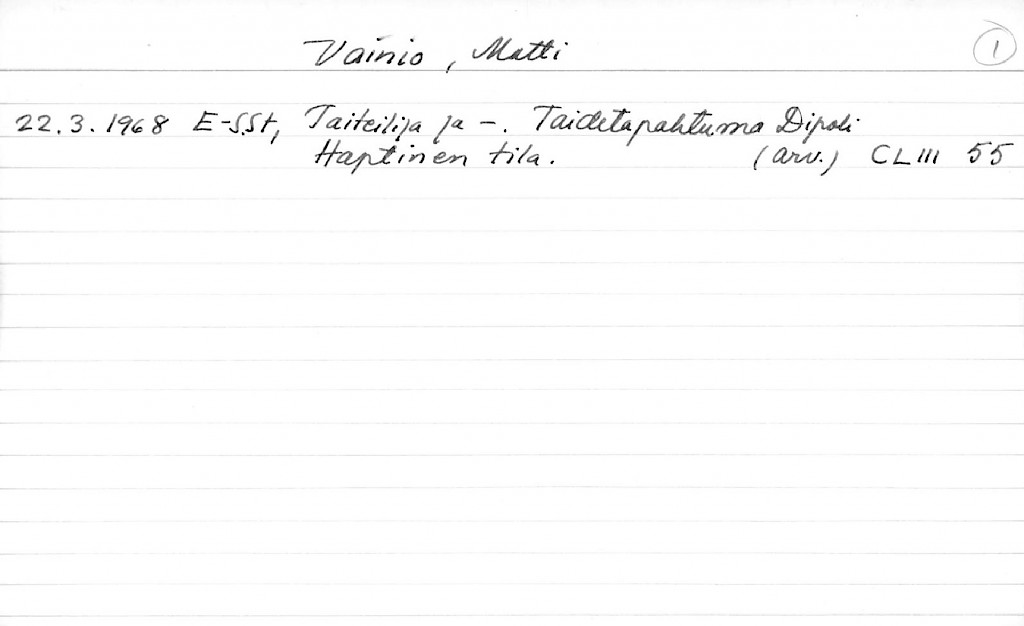 Vainio, Matti
1
22.3.1968 E-S.St, Taiteilija ja -. Taidetapahtuma Dipoli
Haptinen tila. (arv.) CL III 55